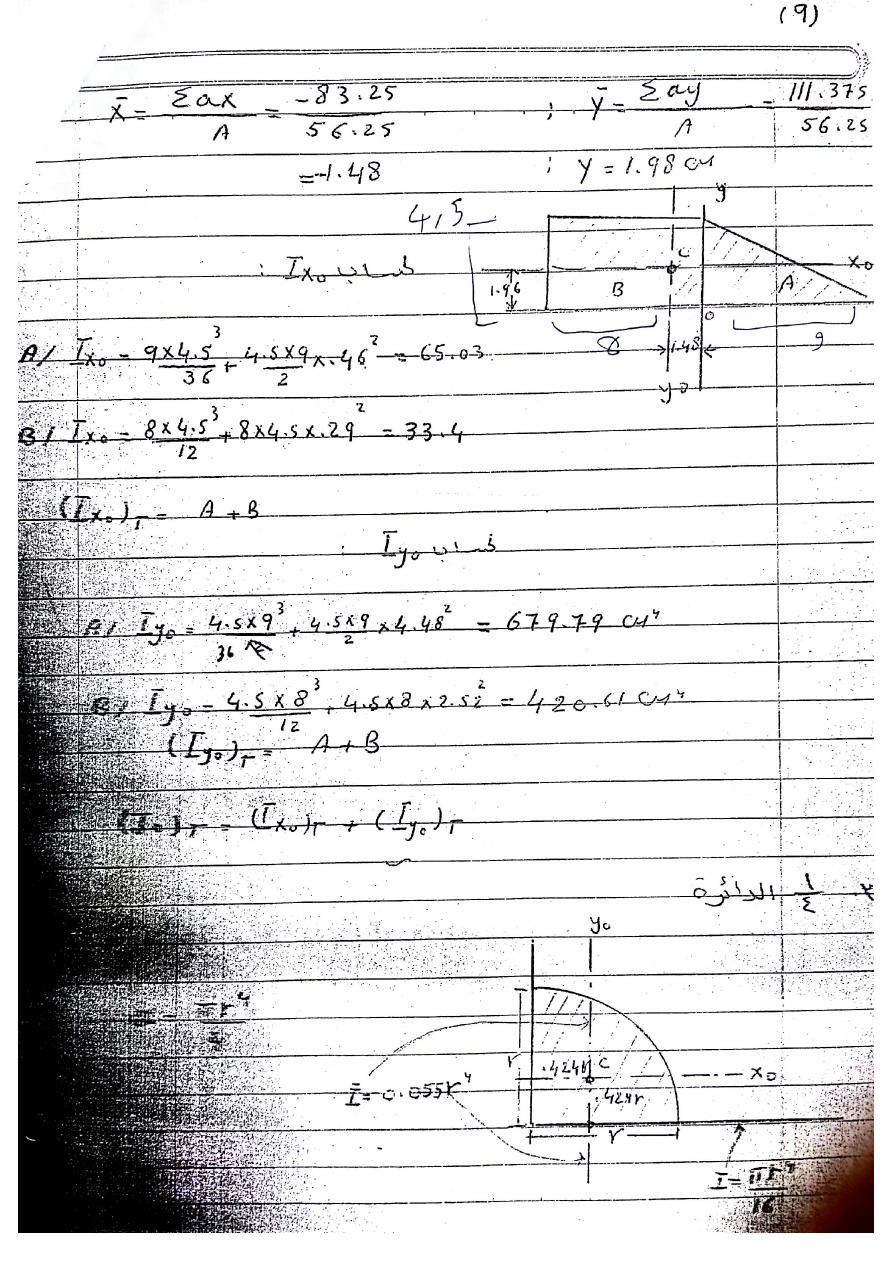 (9)
x̄ = Σax / A = -83.25 / 56.25 ; ȳ = Σay / A = 111.375 / 56.25
= -1.48 ; Y = 1.98 cm
y
4,5
C
x₀
حساب Ix₀ :
1.96
B
A
o
8
1.48
9
y₀
A/ Ix₀ = 9×4.5³/36 + 4.5×9/2 × .46² = 65.03
B/ Ix₀ = 8×4.5³/12 + 8×4.5×.29² = 33.4
(Ix₀)T = A + B
حساب Iy₀ :
A/ Iy₀ = 4.5×9³/36 + 4.5×9/2 × 4.48² = 679.79 cm⁴
B/ Iy₀ = 4.5×8³/12 + 4.5×8×2.52² = 420.61 cm⁴
(Iy₀)T = A + B
(I₀)T = (Ix₀)T + (Iy₀)T
١/٤ الدائرة
y₀
r
.424r
C
x₀
Ī = 0.055r⁴
.424r
r
I = πr⁴/16